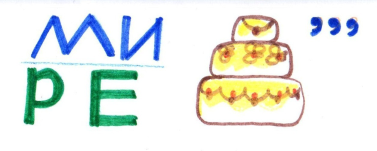 МИ ,,,
РЕ